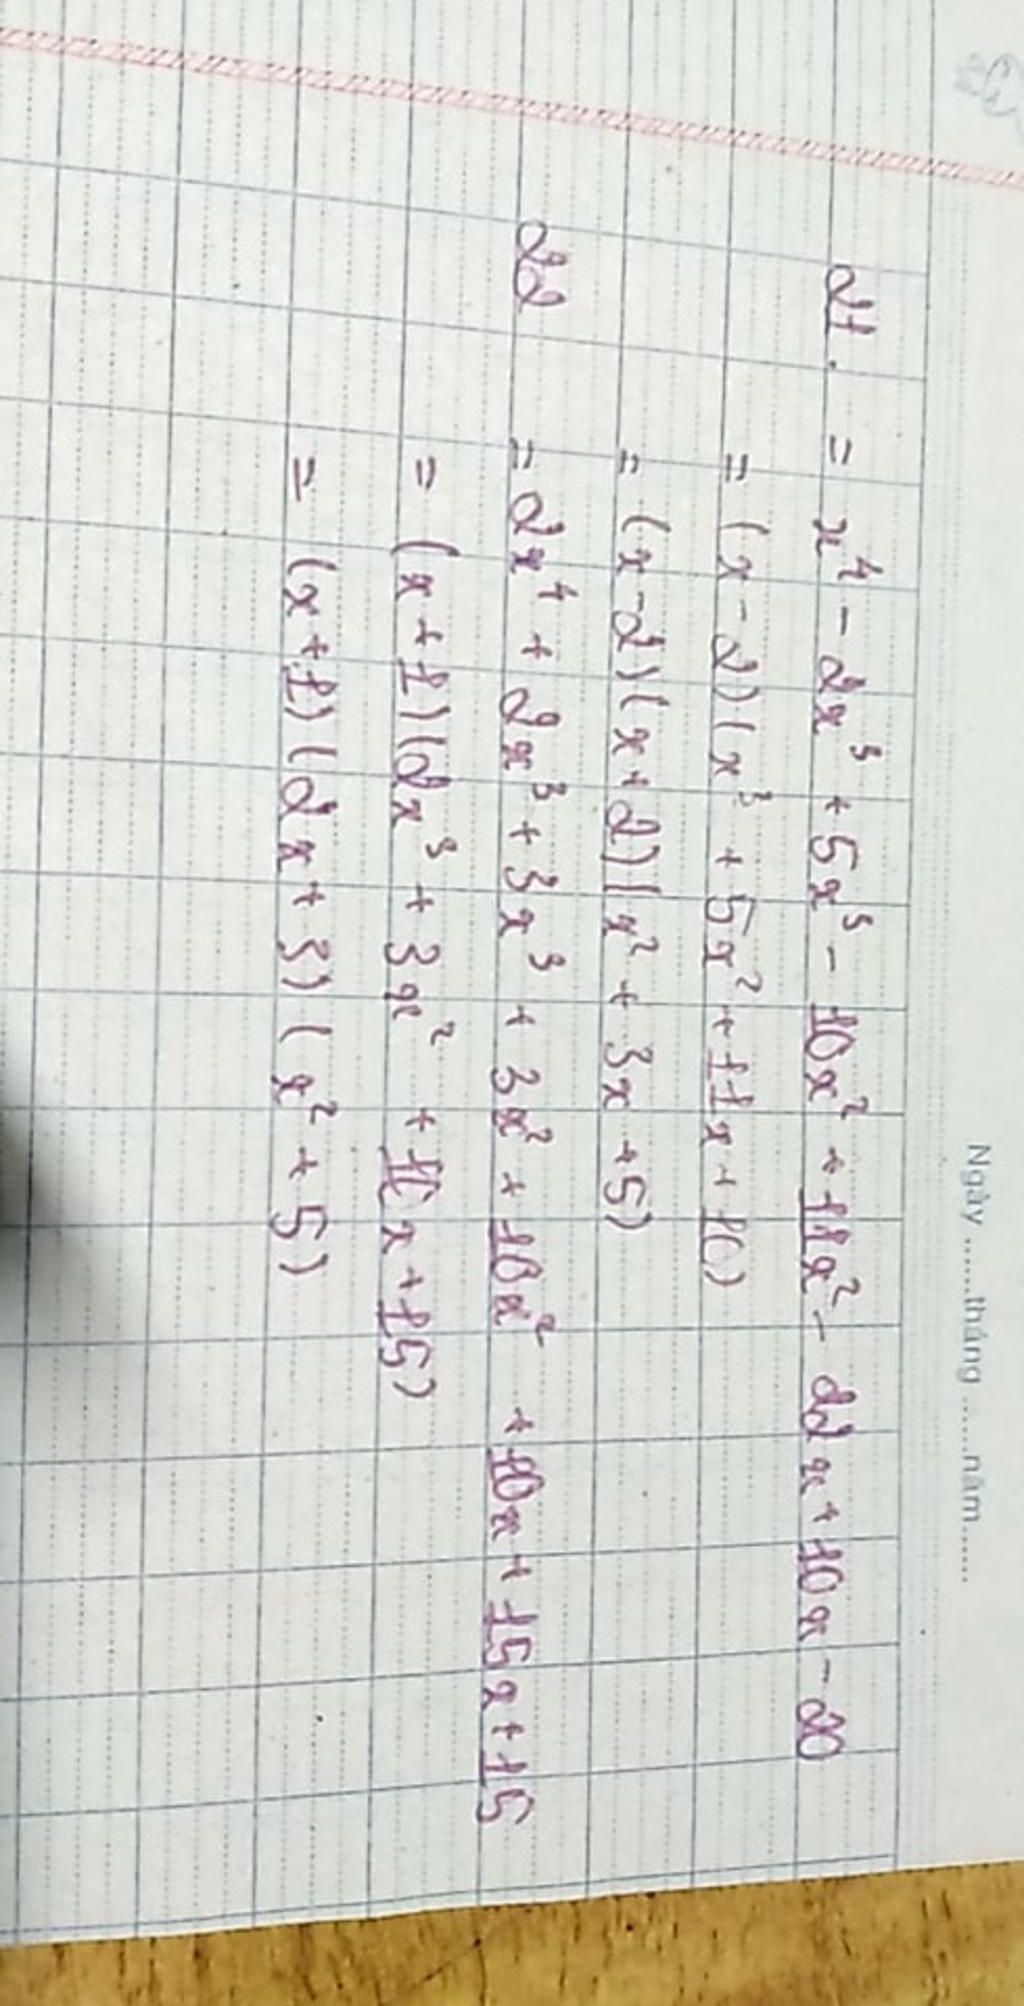 Ngày ......tháng ......năm......
21. = x⁴ - 2x³ + 5x³ - 10x² + 11x² - 22x + 10x - 20
= (x - 2)(x³ + 5x² + 11x + 10)
= (x - 2)(x + 2)(x² + 3x + 5)
22 = 2x⁴ + 2x³ + 3x³ + 3x² + 10x² + 10x + 15x + 15
= (x + 1)(2x³ + 3x² + 10x + 15)
= (x + 1)(2x + 3)(x² + 5)